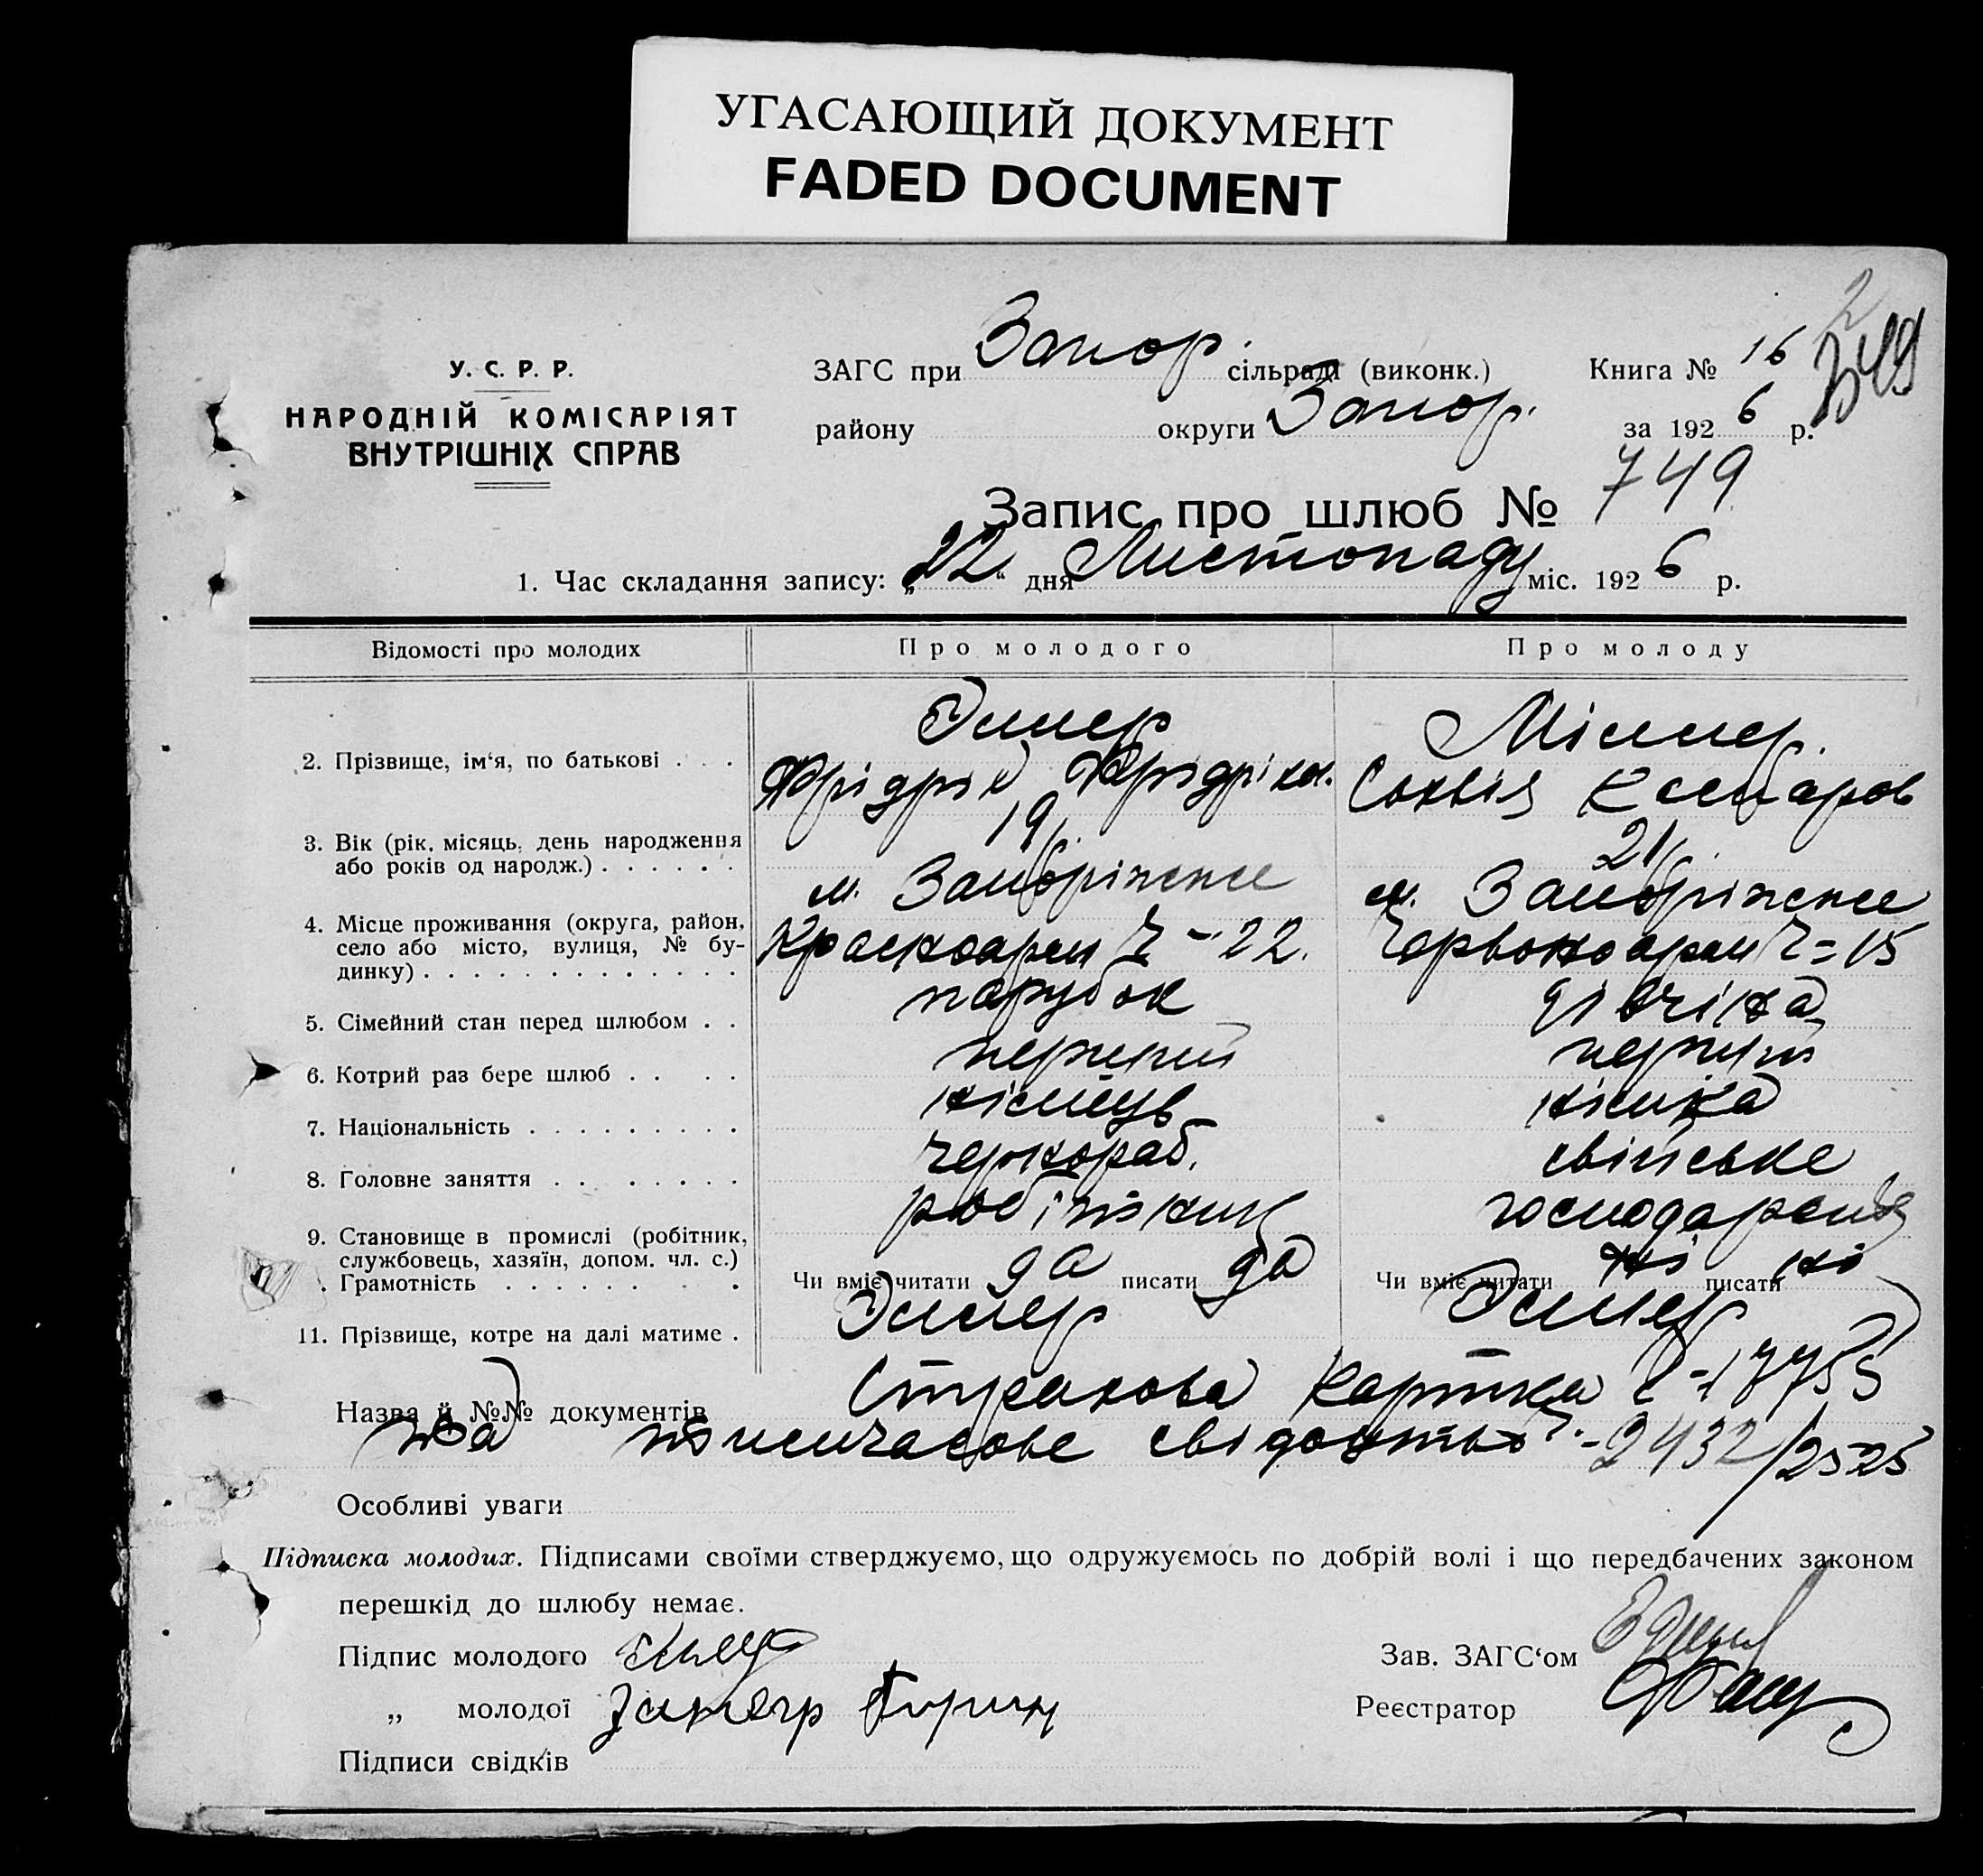 УГАСАЮЩИЙ ДОКУМЕНТ
FADED DOCUMENT
У. С. Р. Р.
НАРОДНІЙ КОМІСАРІЯТ
ВНУТРІШНІХ СПРАВ
ЗАГС при Запор. сільраді (виконк.)
Книга № 16
району округи Запор.
за 192 6 р.
Запис про шлюб № 749
1. Час складання запису: „22“ дня Листопаду міс. 192 6 р.
Відомості про молодих
Про молодого
Про молоду
2. Прізвище, ім‘я, по батькові . . .
Міллер.
3. Вік (рік, місяць, день народження
або років од народж.) . . . . . .
19
21
4. Місце проживання (округа, район,
село або місто, вулиця, № бу-
динку) . . . . . . . . . . . . . .
м. Запоріжжє
Красноарм Ч - 22.
м. Запоріжжє
Червоноарм Ч = 15
5. Сімейний стан перед шлюбом . .
парубок
дівчіна
6. Котрий раз бере шлюб . . . .
перший
перший
7. Національність . . . . . . . . .
німець
німка
8. Головне заняття . . . . . . . .
чернораб.
свійське
9. Становище в промислі (робітник,
службовець, хазяїн, допом. чл. с.)
робітник
господарство
. Грамотність . . . . . . . .
Чи вміє читати да писати да
Чи вміє читати ні писати ні
11. Прізвище, котре на далі матиме .
Назва й №№ документів Страхова картка Ч-17755
та тимчасове свідоцтво Ч.-2432/2525
Особливі уваги
Підписка молодих. Підписами своїми стверджуємо, що одружуємось по добрій волі і що передбачених законом
перешкід до шлюбу немає.
Підпис молодого
Зав. ЗАГС‘ом
„ молодої
Реєстратор
Підписи свідків